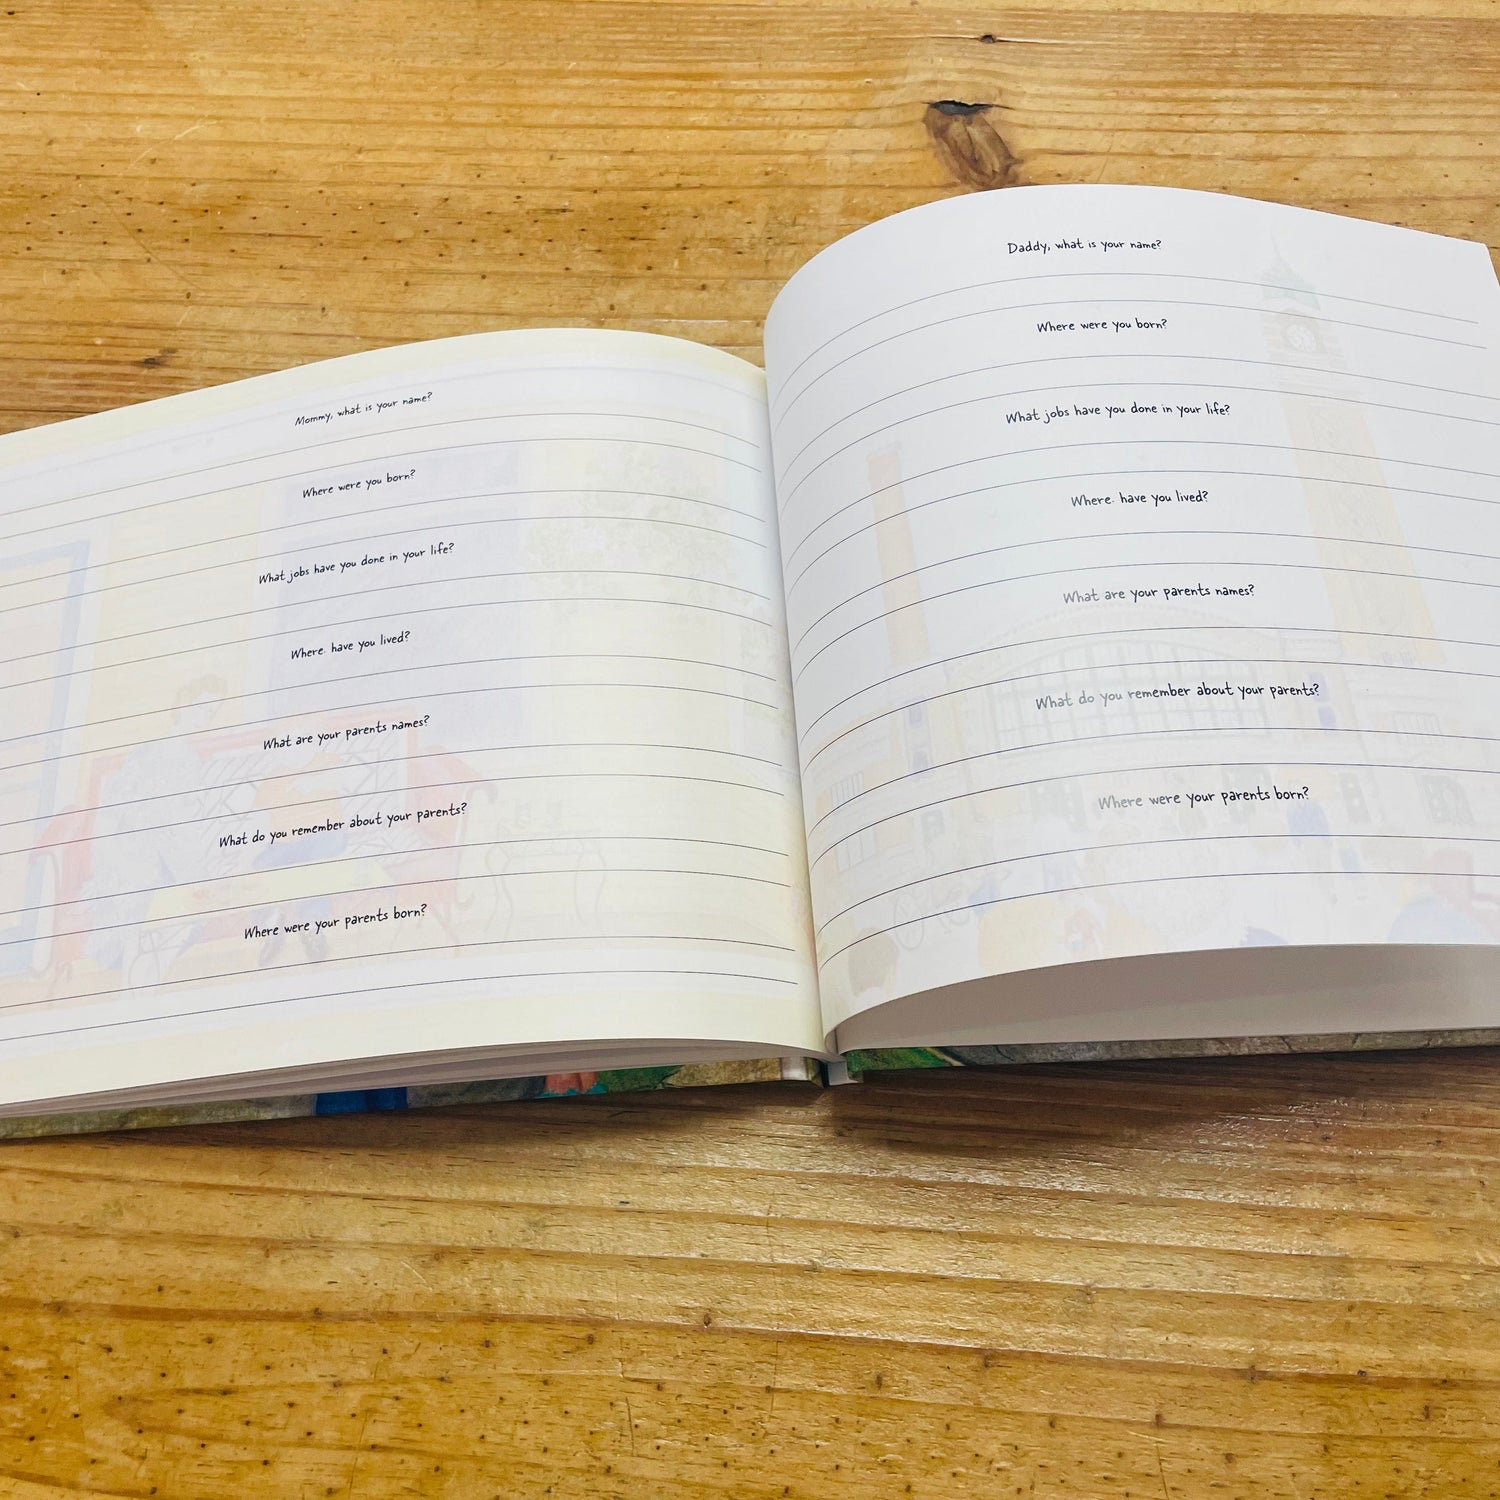 Mommy, what is your name?
Where were you born?
What jobs have you done in your life?
Where have you lived?
What are your parents names?
What do you remember about your parents?
Where were your parents born?
Daddy, what is your name?
Where were you born?
What jobs have you done in your life?
Where have you lived?
What are your parents names?
What do you remember about your parents?
Where were your parents born?